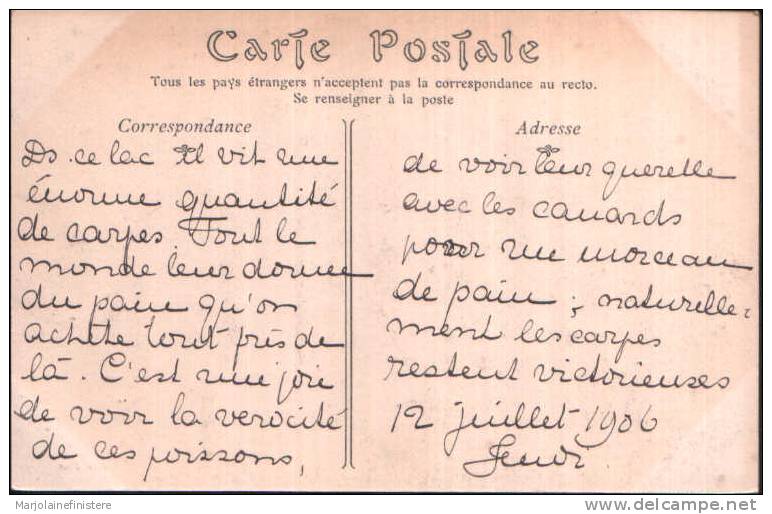 Carte Postale
Tous les pays étrangers n'acceptent pas la correspondance au recto.
Se renseigner à la poste
Correspondance
Ds ce lac il vit une
énorme quantité
de carpes. Tout le
monde leur donne
du pain qu'on
achète tout près de
là. C'est une joie
de voir la verocité
de ces poissons,
Adresse
de voir leur querelle
avec les canards
pour un morceau
de pain ; naturelle=
ment les carpes
restent victorieuses
12 juillet 1906
Jeudi.
Marjolainefinistere
delcampe.net